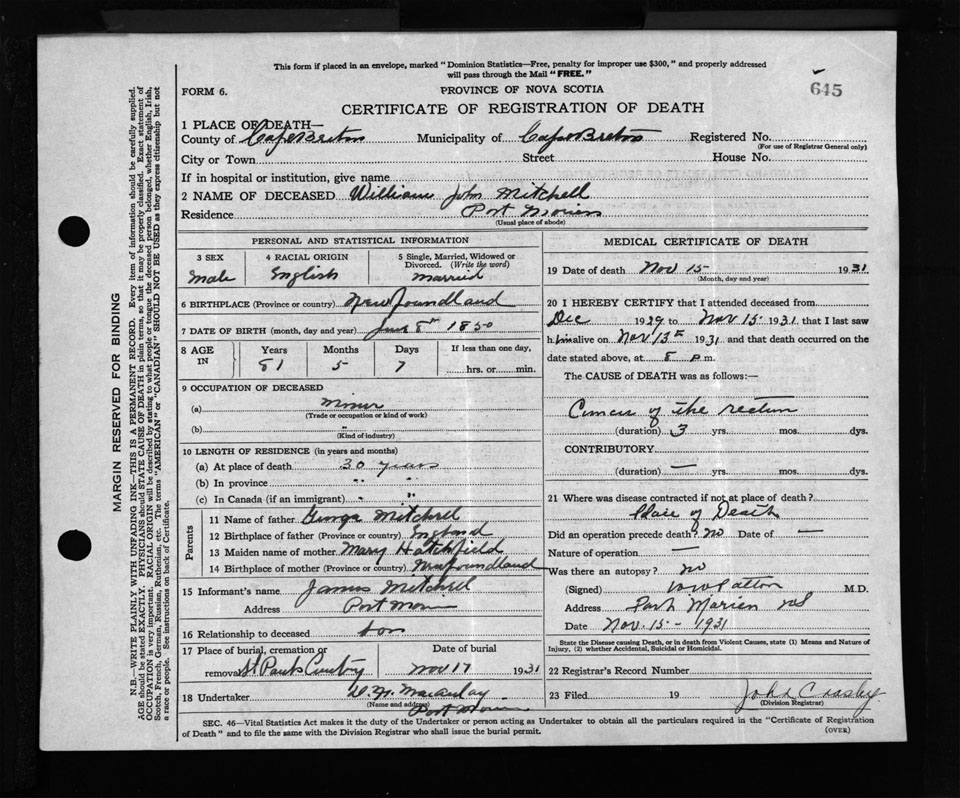 This form if placed in an envelope, marked "Dominion Statistics—Free, penalty for improper use $300," and properly addressed
will pass through the Mail "FREE."
FORM 6.
PROVINCE OF NOVA SCOTIA
645
CERTIFICATE OF REGISTRATION OF DEATH
1 PLACE OF DEATH—
County of Cape Breton Municipality of Cape Breton Registered No.
(For use of Registrar General only)
City or Town Street House No.
If in hospital or institution, give name
2 NAME OF DECEASED William John Mitchell
Residence Port Morien
(Usual place of abode)
PERSONAL AND STATISTICAL INFORMATION
3 SEX 4 RACIAL ORIGIN 5 Single, Married, Widowed or
Divorced. (Write the word)
Male English Married
6 BIRTHPLACE (Province or country) Newfoundland
7 DATE OF BIRTH (month, day and year) June 8th 1850
8 AGE IN Years Months Days If less than one day,
81 5 7 hrs. or min.
9 OCCUPATION OF DECEASED
(a) Miner
(Trade or occupation or kind of work)
(b) "
(Kind of industry)
10 LENGTH OF RESIDENCE (in years and months)
(a) At place of death 30 years
(b) In province " "
(c) In Canada (if an immigrant) " "
Parents
11 Name of father George Mitchell
12 Birthplace of father (Province or country) England
13 Maiden name of mother Mary Hatchfield
14 Birthplace of mother (Province or country) Newfoundland
15 Informant's name James Mitchell
Address Port Morien
16 Relationship to deceased Son
17 Place of burial, cremation or Date of burial
removal St Pauls Cemetry Nov 17 1931
18 Undertaker Macaulay
(Name and address) Port Morien
MEDICAL CERTIFICATE OF DEATH
19 Date of death Nov 15 1931
(Month, day and year)
20 I HEREBY CERTIFY that I attended deceased from
Dec 1929 to Nov 15 1931 that I last saw
him alive on Nov 13th 1931 and that death occurred on the
date stated above, at 8 p.m.
The CAUSE of DEATH was as follows:—
Cancer of the rectum
(duration) 3 yrs. mos. dys.
CONTRIBUTORY.
(duration) — yrs. mos. dys.
21 Where was disease contracted if not at place of death?
Place of Death
Did an operation precede death? no Date of —
Nature of operation —
Was there an autopsy? no
(Signed) Patton M.D.
Address Port Morien NS
Date Nov. 15 - 1931
State the Disease causing Death, or in death from Violent Causes, state (1) Means and Nature of
Injury, (2) whether Accidental, Suicidal or Homicidal.
22 Registrar's Record Number
23 Filed 19 John Crosby
(Division Registrar)
SEC. 46—Vital Statistics Act makes it the duty of the Undertaker or person acting as Undertaker to obtain all the particulars required in the "Certificate of Registration
of Death" and to file the same with the Division Registrar who shall issue the burial permit.
(OVER)
MARGIN RESERVED FOR BINDING
N.B.—WRITE PLAINLY WITH UNFADING INK—THIS IS A PERMANENT RECORD. Every item of information should be carefully supplied.
AGE should be stated EXACTLY. PHYSICIANS should STATE CAUSE OF DEATH in plain terms, so that it may be properly classified. Exact statement of
OCCUPATION is very important. RACIAL ORIGIN will be described by stating to what people or tongue the deceased person belonged, whether English, Irish,
Scotch, French, German, Russian, Ruthenian, etc. The terms "AMERICAN" or "CANADIAN" SHOULD NOT BE USED as they express citizenship but not
a race or people. See instructions on back of Certificate.